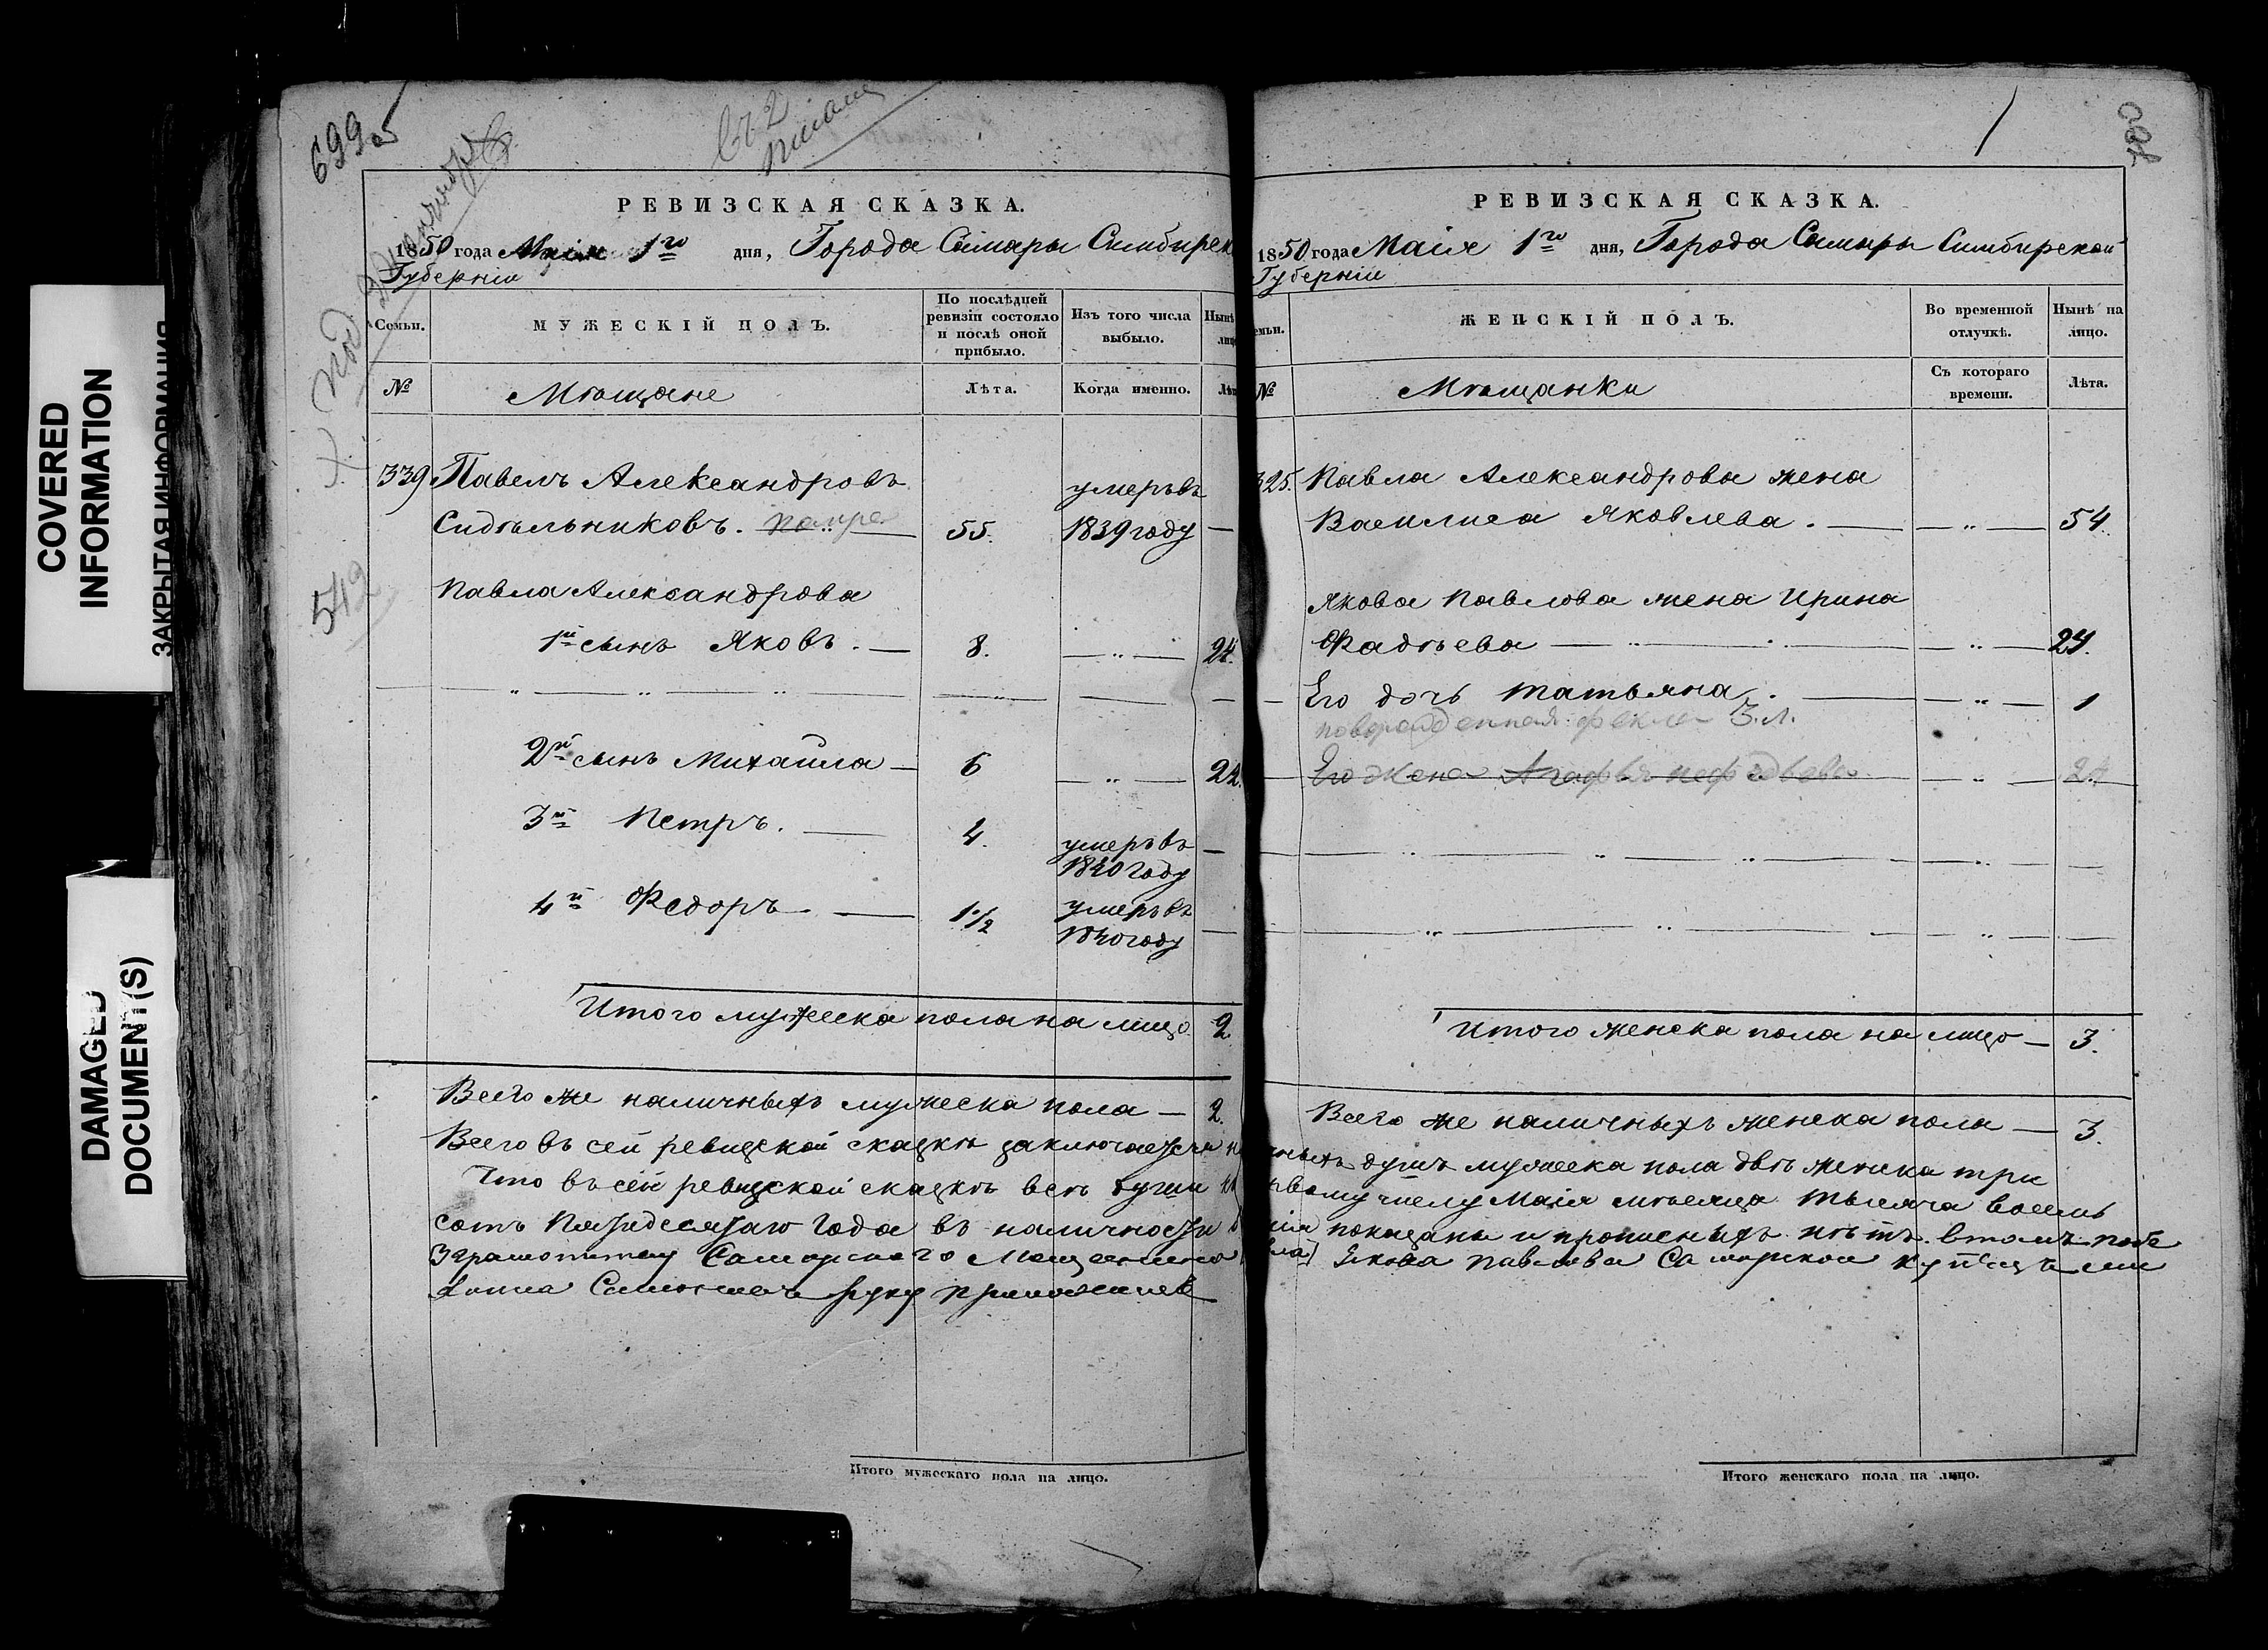 COVERED
INFORMATION
DAMAGED
DOCUMENT(S)
699
РЕВИЗСКАЯ СКАЗКА.
1850 года Маія 1го дня, Города Самары Симбирск
Губерніи
Семьи.
МУЖЕСКІЙ ПОЛЪ.
По послѣдней
ревизіи состояло
и послѣ оной
прибыло.
Изъ того числа
выбыло.
№
Мѣщане
Лѣта.
Когда именно.
339
Павелъ Александровъ
умеръ въ
Сидѣльниковъ.
55.
1839 году
Павла Александрова
1й сынъ Яковъ.
8.
24.
2й сынъ Михайла
6
22.
3й Петръ.
4.
умеръ въ
1840 году
4й Федоръ
1 1/2
умеръ въ
1840 году
Итого мужеска пола на лицо
2.
Всего же наличныхъ мужеска пола — 2.
Всего въ сей ревизской сказкѣ заключается
Что въ сей ревизской сказкѣ всѣ души
сотъ пятьдесятаго года въ наличности
руку приложилъ
542
Итого мужескаго пола на лицо.
700
РЕВИЗСКАЯ СКАЗКА.
1850 года Маія 1го дня, Города Самары Симбирской
Губерніи
ЖЕНСКІЙ ПОЛЪ.
Во временной
отлучкѣ.
Нынѣ на
лицо.
№
Мѣщанки
Съ котораго
времени.
Лѣта.
325.
Павла Александрова жена
Василиса Яковлева.
54.
Якова Павлова жена Ирина
Фадѣева
24.
Его дочь Татьяна.
1
новорожденная Фекла 3. л.
Его жена Агафья
Итого женска пола на лицо — 3.
Всего же наличныхъ женска пола — 3.
душъ мужеска пола двѣ женска три
числу Маія мѣсяца тысяча восемь
показаны и прописныхъ нѣтъ. в томъ
Якова Павлова
Итого женскаго пола на лицо.